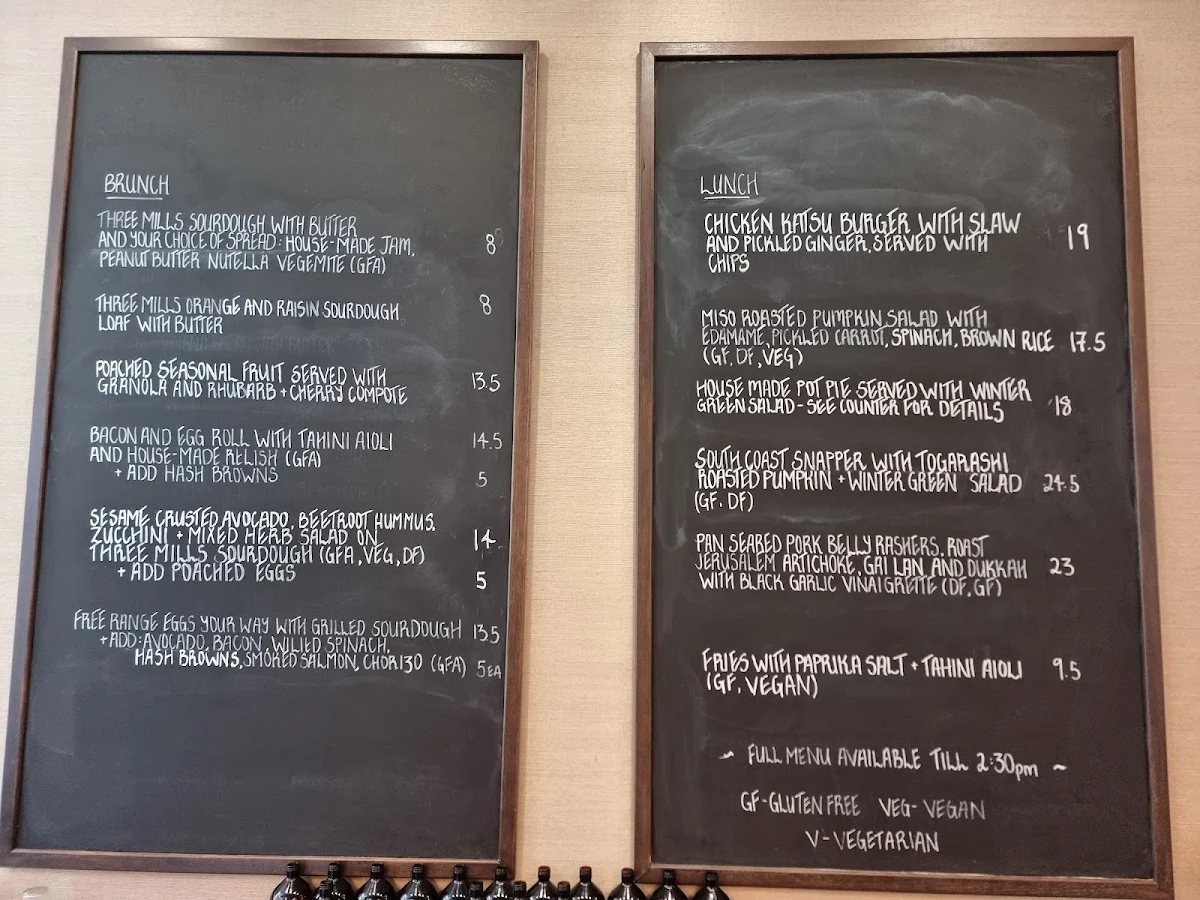 BRUNCH
THREE MILLS SOURDOUGH WITH BUTTER
AND YOUR CHOICE OF SPREAD: HOUSE-MADE JAM, 8
PEANUT BUTTER NUTELLA VEGEMITE (GFA)
THREE MILLS ORANGE AND RAISIN SOURDOUGH 8
LOAF WITH BUTTER
POACHED SEASONAL FRUIT SERVED WITH 13.5
GRANOLA AND RHUBARB + CHERRY COMPOTE
BACON AND EGG ROLL WITH TAHINI AIOLI 14.5
AND HOUSE-MADE RELISH (GFA)
+ ADD HASH BROWNS 5
SESAME CRUSTED AVOCADO, BEETROOT HUMMUS,
ZUCCHINI + MIXED HERB SALAD ON 14
THREE MILLS SOURDOUGH (GFA, VEG, DF)
+ ADD POACHED EGGS 5
FREE RANGE EGGS YOUR WAY WITH GRILLED SOURDOUGH 13.5
+ADD: AVOCADO, BACON, WILTED SPINACH,
HASH BROWNS, SMOKED SALMON, CHORIZO (GFA) 5EA
LUNCH
CHICKEN KATSU BURGER WITH SLAW
AND PICKLED GINGER, SERVED WITH 19
CHIPS
MISO ROASTED PUMPKIN SALAD WITH
EDAMAME, PICKLED CARROT, SPINACH, BROWN RICE 17.5
(GF, DF, VEG)
HOUSE MADE POT PIE SERVED WITH WINTER
GREEN SALAD - SEE COUNTER FOR DETAILS 18
SOUTH COAST SNAPPER WITH TOGARASHI
ROASTED PUMPKIN + WINTER GREEN SALAD 24.5
(GF, DF)
PAN SEARED PORK BELLY RASHERS, ROAST
JERUSALEM ARTICHOKE, GAI LAN, AND DUKKAH 23
WITH BLACK GARLIC VINAIGRETTE (DF, GF)
FRIES WITH PAPRIKA SALT + TAHINI AIOLI 9.5
(GF, VEGAN)
~ FULL MENU AVAILABLE TILL 2:30pm ~
GF-GLUTEN FREE VEG- VEGAN
V-VEGETARIAN